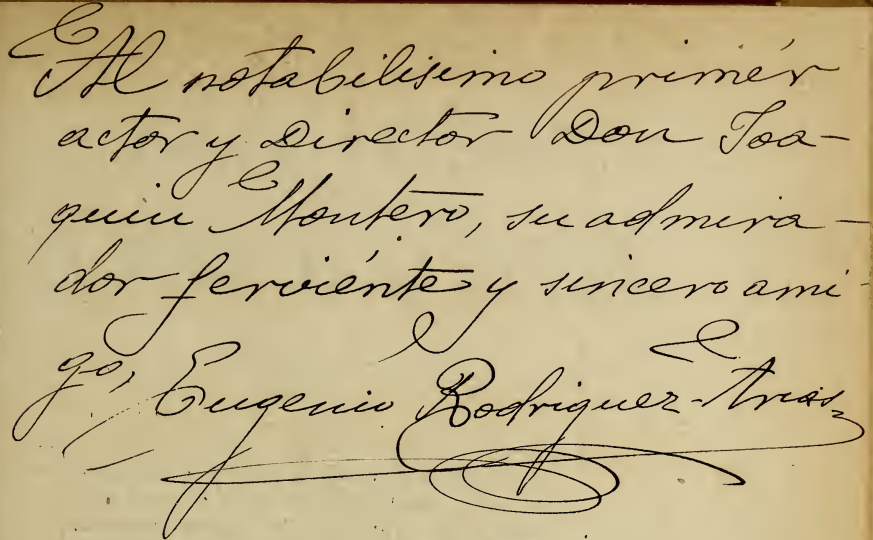 Al notabilisimo primér
actor y Director Don Joa-
quin Montero, su admira-
dor ferviénte y sincero ami-
go,
Eugenio Rodriguez-Arias